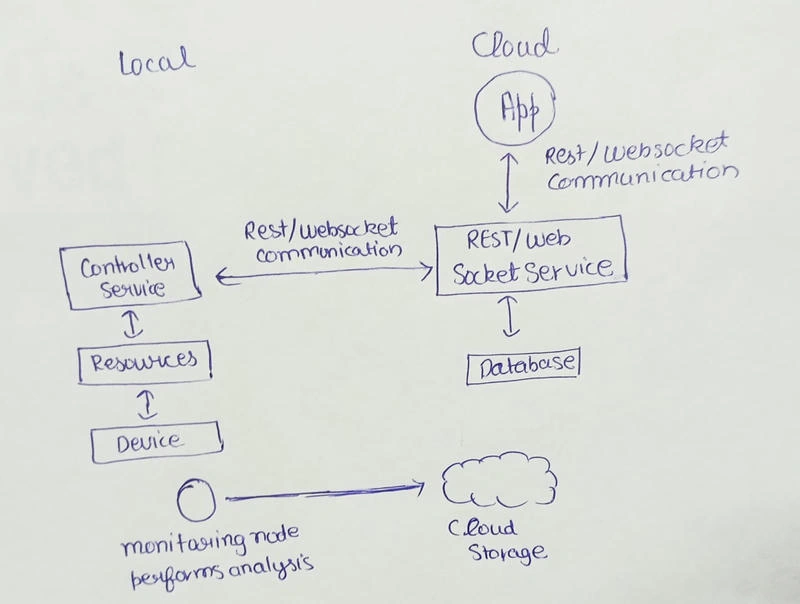 Local
Cloud
App
Rest/Websocket
Communication
Rest/Websocket
communication
REST/Web
Socket Service
Controller
Service
Resources
Database
Device
monitoring node
performs analysis
Cloud
Storage